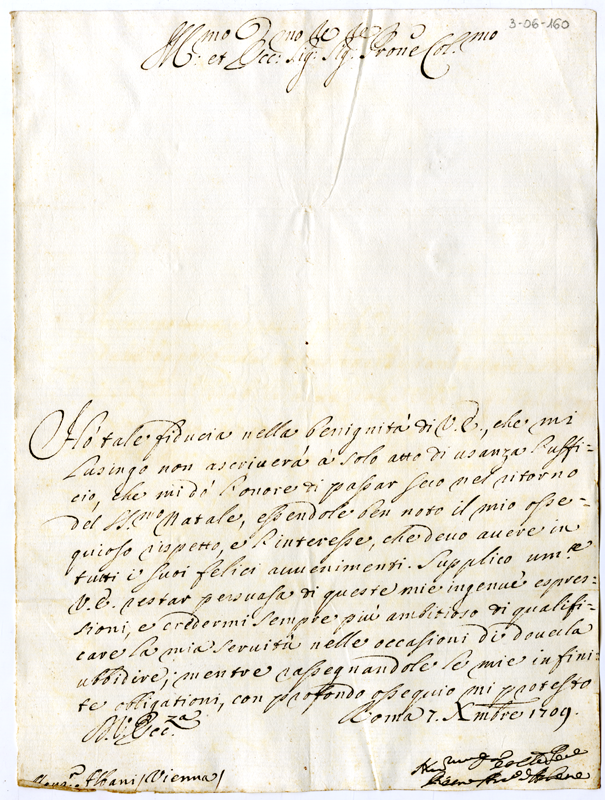 3-06-160
Ill.mo et Ecc.mo Sig.re Sig.re Prone Col.mo
Hó tale fiducia nella benignità di V.E., che mi
lusingo non ascriuerá á solo atto di usanza l'uffi-
cio, che mi dó l'onore di passar seco nel ritorno
del SS.mo Natale, essendole ben noto il mio osse-
quioso rispetto, e l'interesse, che deuo auere in
tutti i suoi felici auuenimenti. Supplico um.te
V.E. restar persuasa di queste mie ingenue espres-
sioni, e credermi sempre piú ambitioso di qualifi-
care la mia seruitú nelle occasioni di douerla
ubbidire; mentre rassegnandole le mie infini-
te obligationi, con profondo ossequio mi protesto
Di V. Ecc.za Roma 7. Xmbre 1709.
Albani / Vienna /